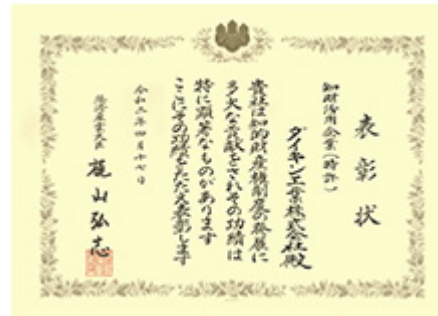 表彰状
知財活用企業(特許)
ダイキン工業株式会社殿
貴社は知的財産権制度の発展に
多大な貢献をされその功績は
特に顕著なものがあります
ここにその功績をたたえ表彰します
令和二年四月十七日
経済産業大臣
梶山弘志